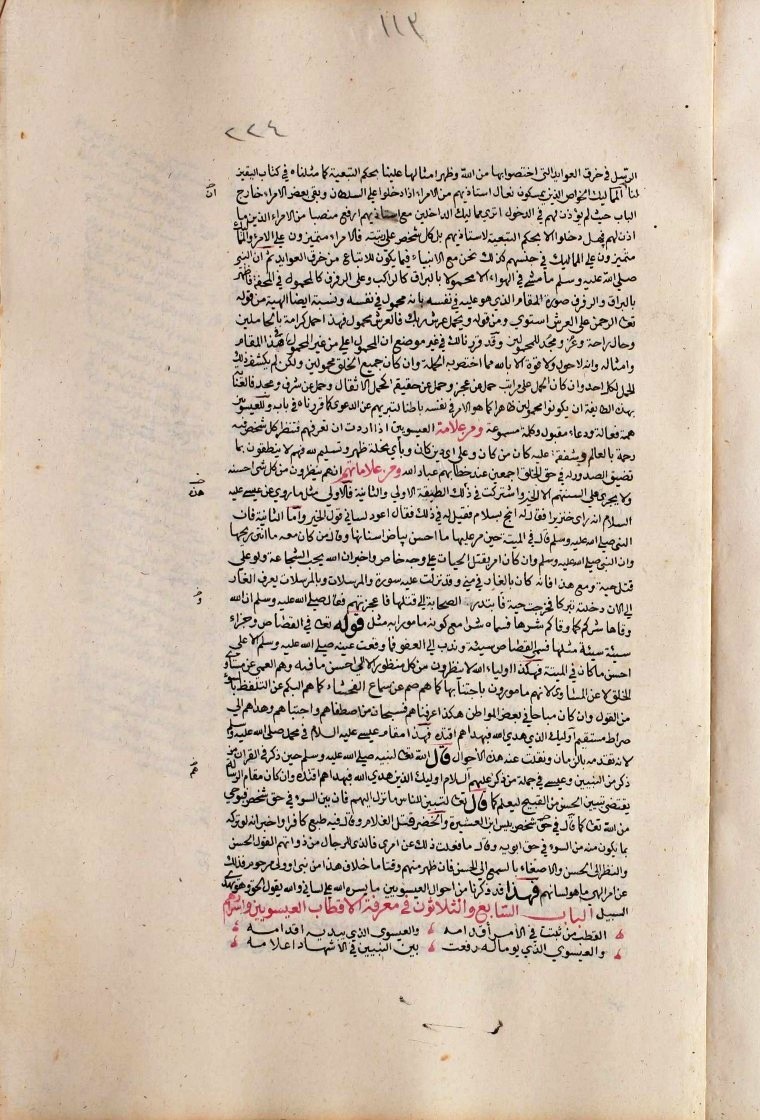 ١١٣
٢٢٤
الرسل في خرق العوايد التي اختصوا بها من الله وظهر امثالها علينا بحكم التبعية كما مثلناه في كتاب اليقين
لنا المماليك الخواص الذين يمسكون نعال استاذيهم من الامراء اذا دخلوا على السلطان وبقي بعض الامراء خارج
الباب حيث لم يؤذن لهم في الدخول اترى مماليك الداخلين مع استاذيهم ارفع منصبا من الامراء الذين ما
اذن لهم فهل دخلوا الا بحكم التبعية لاستاذيهم بل كل شخص على رتبته فالامراء متميزون على الامراء والمماليك
متميزون على المماليك في جنسهم كذلك نحن مع الانبياء فيما يكون للاتباع من خرق العوايد ثم ان النبي
صلى الله عليه وسلم ما مشى في الهواء الا محمولا بالبراق كالراكب وعلى الرفرف كالمحمول في المحفة فاظهر
بالبراق والرفرف صورة المقام الذي هو عليه في نفسه بانه محمول في نفسه ونسبة ايضا الهية من قوله
تعالى الرحمن على العرش استوى ومن قوله ويحمل عرش ربك فالعرش محمول فهذا حمل كرامة بالحاملين
وحال راحة وعز ومجد للمحمولين وقد قررنا لك في غير موضع ان المحمول اعلى من غير المحمول في هذا المقام
وامثاله وانه لا حول ولا قوة الا بالله مما اختصوا به الحملة وان كان جميع الخلق محمولين ولكن لم يكشف ذلك
الحمل لكل احد وان كان الحمل على مراتب حمل عن عجز وحمل عن حقيقة كحمل الاثقال وحمل عن شرف ومجد فالعناية
بهذه الطايفة ان يكونوا محمولين ظاهرا كما هو الامر في نفسه باطنا لتبريهم عن الدعوى كما قررناه في بابه وللعيسويين
همة فعالة ودعاء مقبول وكلمة مسموعة ومن علامة العيسويين اذا اردت ان تعرفهم فتنظر كل شخص فيه
رحمة بالعالم وشفقة عليه كان من كان وعلى اي دين كان وباي نحلة ظهر وتسليم لله فيهم لا ينطقون بما
تضيق الصدور له في حق الخلق اجمعين عند خطابهم عباد الله ومن علاماتهم انهم ينظرون من كل شي احسنه
ولا يجري على السنتهم الا الخير واشتركت في ذلك الطبقة الاولى والثانية فالاولى مثل ما روي عن عيسى عليه
السلام انه راى خنزيرا فقال له انج بسلام فقيل له في ذلك فقال اعود لساني قول الخير واما الثانية فان
النبي صلى الله عليه وسلم قال في الميتة حين مر عليها ما احسن بياض اسنانها وقال من كان معه ما انتن ريحها
وان النبي صلى الله عليه وسلم وان كان امر بقتل الحيات على وجه خاص واخبر ان الله يحب الشجاعة ولو على
قتل حية ومع هذا فانه كان بالغار في منى وقد نزلت عليه سورة والمرسلات وبالمرسلات يعرف الغار
الى الان دخلته تبركا فخرجت حية فابتدر الصحابة الى قتلها فاعجزتهم فقال صلى الله عليه وسلم ان الله
وقاها شركم كما وقاكم شرها فسماه شرا مع كونه مامورا به مثل قوله تعالى في القصاص وجزاء
سيئة سيئة مثلها فسمى القصاص سيئة وندب الى العفو فما وقعت عينه صلى الله عليه وسلم الا على
احسن ما كان في الميتة فهكذا اولياء الله لا ينظرون من كل منظور الا الى احسن ما فيه وهم العمي عن مساوي
الخلق لا عن المساوي لانهم مامورون باجتنابها كما هم صم عن سماع الفحشاء كما هم البكم عن التلفظ بالسوء
من القول وان كان مباحا في بعض المواطن هكذا اعرفناهم فسبحان من اصطفاهم واجتباهم وهداهم الى
صراط مستقيم اوليك الذين هدى الله فبهداهم اقتده فهذا مقام عيسى عليه السلام في محمد صلى الله عليه وسلم
لانه تقدمه بالزمان ونقلت عنه هذه الاحوال قال الله تعالى لنبيه صلى الله عليه وسلم حين ذكر في القران من
ذكر من النبيين وعيسى في جملة من ذكر عليهم السلام اوليك الذين هدى الله فبهداهم اقتده وان كان مقام الرسالة
يقتضي تبيين الحسن من القبيح ليعلم كما قال تعالى لتبين للناس ما نزل اليهم فان بين السوء في حق شخص فبوحي
من الله تعالى كما قال في حق شخص بيس ابن العشيرة والخضر قتل الغلام وقال فيه طبع كافرا واخبر انه لو تركه
بما يكون منه من السوء في حق ابويه وقال ما فعلت ذلك عن امري فالذي للرجال من ذواتهم القول الحسن
والنظر الى الحسن والاصغاء بالسمع الى الحسن فان ظهر منهم وقتا ما خلاف هذا من نبي او ولي مرجوم فذلك
عن امر الهي ما هو لسانهم فهذا قد ذكرنا من احوال العيسويين ما يسره الله على لساني والله يقول الحق وهو يهدي
السبيل الباب السابع والثلاثون في معرفة الاقطاب العيسويين واسرارهم
القطب من ثبتت في الامر اقدامه والعيسوي الذي يبديه اقدامه
والعيسوي الذي يوما له رفعت بين النبيين في الاشهاد اعلامه